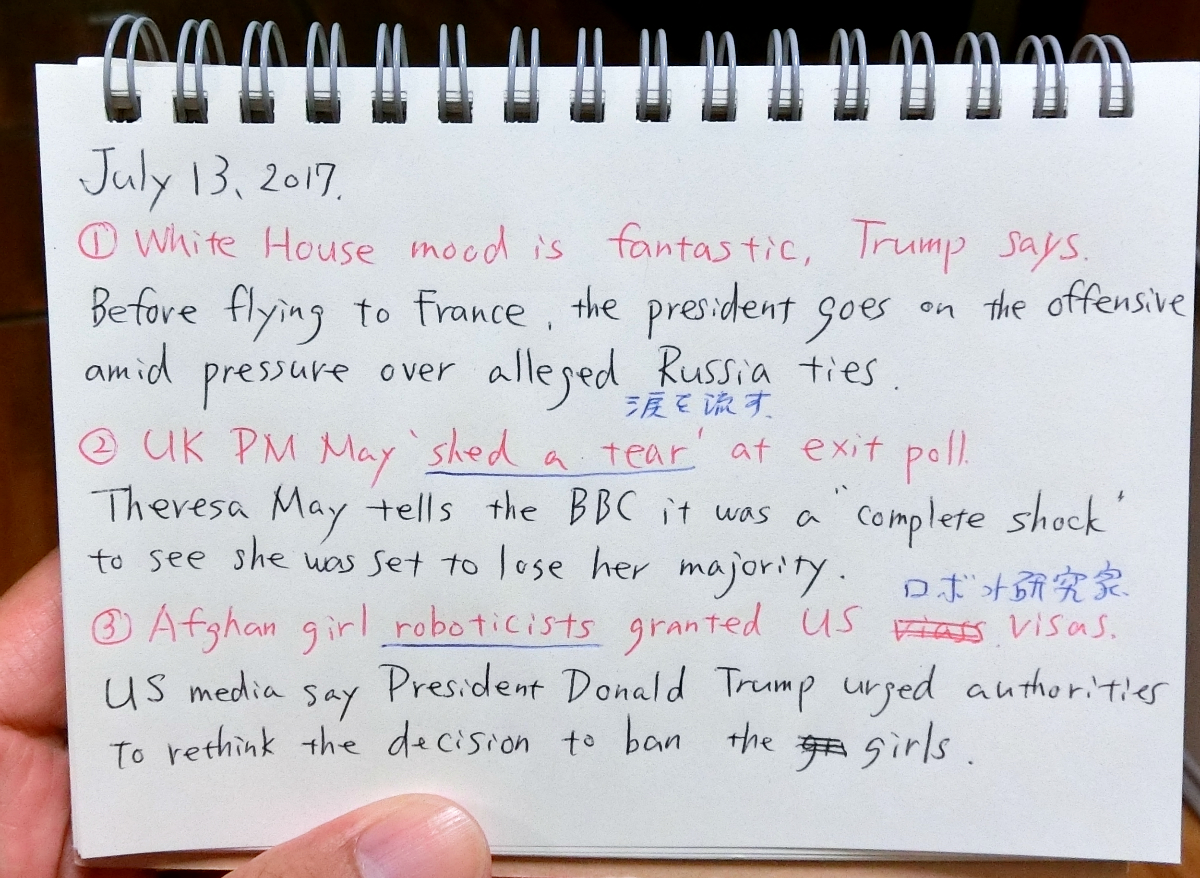 July 13, 2017.
① White House mood is fantastic, Trump says.
Before flying to France, the president goes on the offensive
amid pressure over alleged Russia ties.
涙を流す、
② UK PM May 'shed a tear' at exit poll.
Theresa May tells the BBC it was a "complete shock'
to see she was set to lose her majority.
ロボット研究家、
③ Afghan girl roboticists granted US visas.
US media say President Donald Trump urged authorities
to rethink the decision to ban the girls.